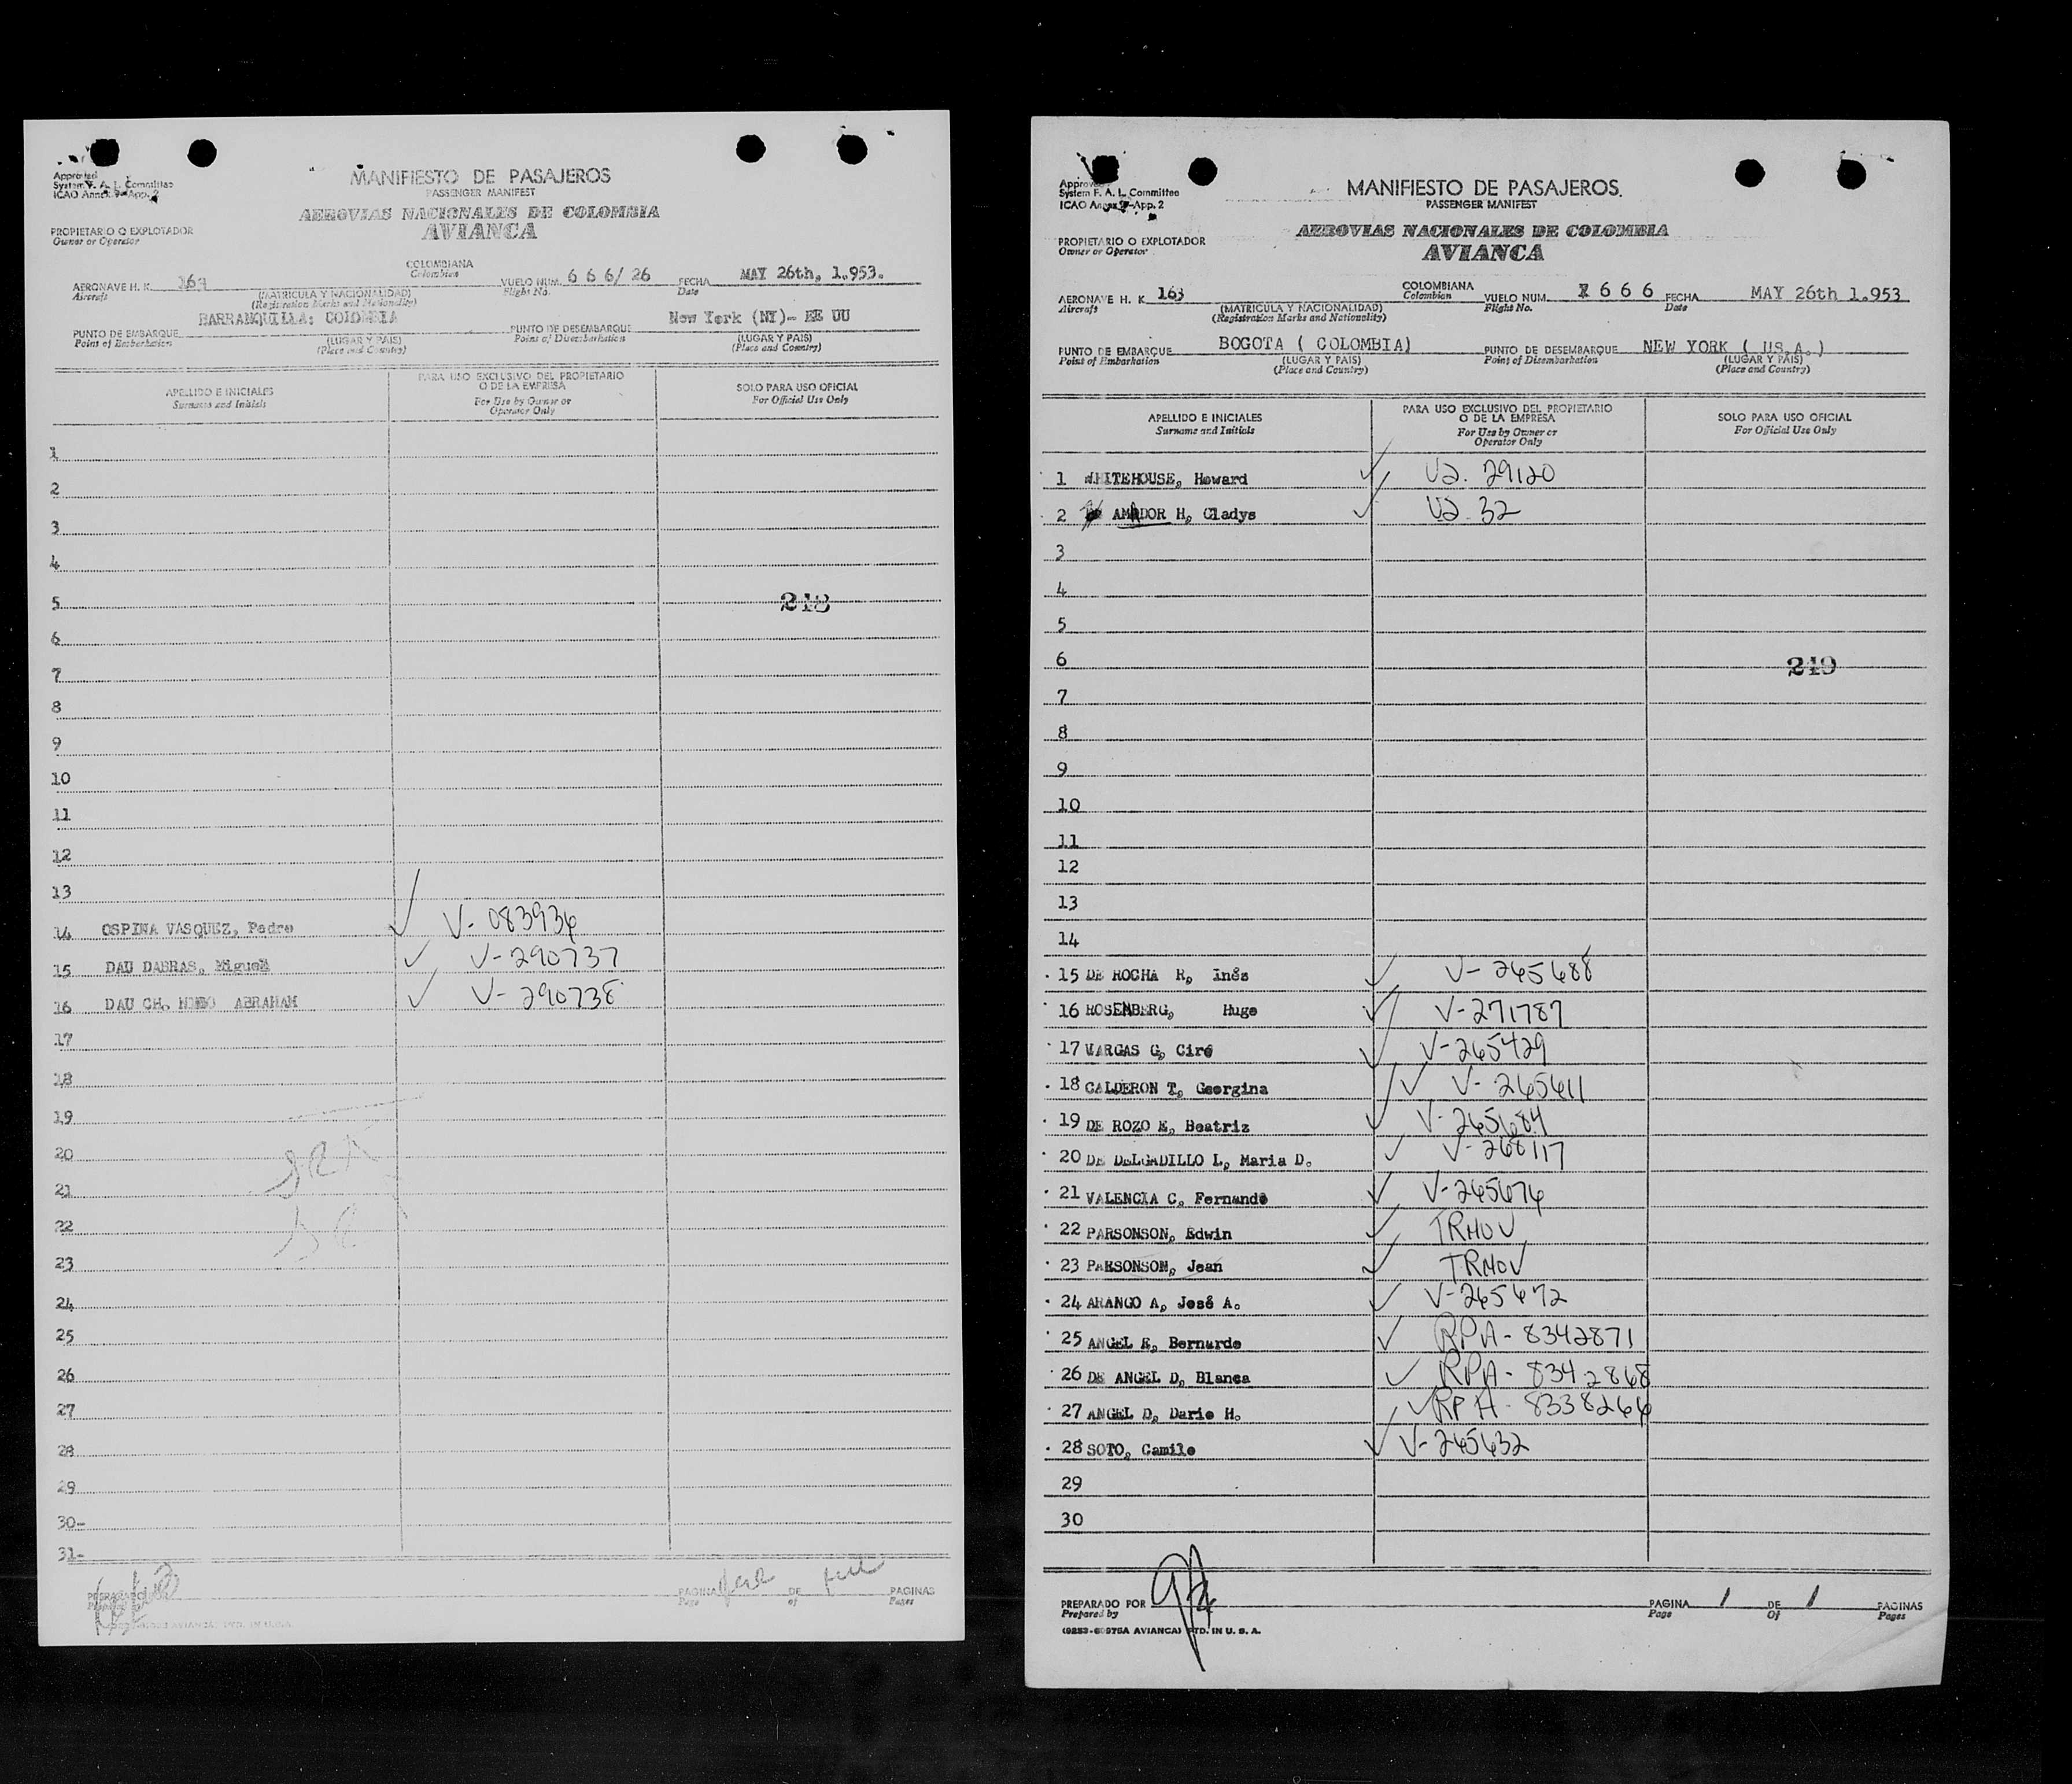 Approved
System F. A. I. Committee
ICAO Annex 9-App. 2
MANIFIESTO DE PASAJEROS
PASSENGER MANIFEST
AEROVIAS NACIONALES DE COLOMBIA
AVIANCA
PROPIETARIO O EXPLOTADOR
Owner or Operator
COLOMBIANA
Colombian
AERONAVE H. K. 163 VUELO NUM. 6 6 6/ 26 FECHA MAY 26th, 1.953.
Aircraft (MATRICULA Y NACIONALIDAD) Flight No. Date
(Registration Marks and Nationality)
BARRANQUILLA: COLOMBIA New York (NY)- EE UU
PUNTO DE EMBARQUE (LUGAR Y PAIS) PUNTO DE DESEMBARQUE (LUGAR Y PAIS)
Point of Embarkation (Place and Country) Point of Disembarkation (Place and Country)
APELLIDO E INICIALES PARA USO EXCLUSIVO DEL PROPIETARIO O DE LA EMPRESA SOLO PARA USO OFICIAL
Surname and Initials For Use by Owner or Operator Only For Official Use Only
1
2
3
4
5 248
6
7
8
9
10
11
12
13
14 OSPINA VASQUEZ, Pedro V- 083936
15 DAU DABRAS, Miguel V-290737
16 DAU CH. ABRAHAM V- 290738
17
18
19
20
21
22
23
24
25
26
27
28
29
30-
31-
PREPARADO POR PAGINA DE PAGINAS
Prepared by Page of Pages
AVIANCA) PTD. IN U.S.A.
Approved
System F. A. I. Committee
ICAO Annex 9-App. 2
MANIFIESTO DE PASAJEROS.
PASSENGER MANIFEST
AEROVIAS NACIONALES DE COLOMBIA
AVIANCA
PROPIETARIO O EXPLOTADOR
Owner or Operator
COLOMBIANA
Colombian
AERONAVE H. K 163 VUELO NUM. 6 6 6 FECHA MAY 26th 1.953
Aircraft (MATRICULA Y NACIONALIDAD) Flight No. Date
(Registration Marks and Nationality)
PUNTO DE EMBARQUE BOGOTA ( COLOMBIA) PUNTO DE DESEMBARQUE NEW YORK ( US.A.)
Point of Embarkation (LUGAR Y PAIS) Point of Disembarkation (LUGAR Y PAIS)
(Place and Country) (Place and Country)
APELLIDO E INICIALES PARA USO EXCLUSIVO DEL PROPIETARIO O DE LA EMPRESA SOLO PARA USO OFICIAL
Surname and Initials For Use by Owner or Operator Only For Official Use Only
1 WHITEHOUSE, Howard 29120
2 AMADOR H, Gladys 32
3
4
5
6 249
7
8
9
10
11
12
13
14
15 DE ROCHA R, Inés V- 265688
16 ROSENBERG, Hugo V-271787
17 VARGAS G, Ciro V-265429
18 CALDERON T, Georgina V- 265611
19 DE ROZO E, Beatriz V-265684
20 DE DELGADILLO L, Maria D. V- 268117
21 VALENCIA C, Fernando V-265676
22 PARSONSON, Edwin TRNOV
23 PARSONSON, Jean TRNOV
24 ARANGO A, José A. V-265672
25 ANGEL E, Bernardo RPA- 8342871
26 DE ANGEL D, Blanca RPA- 8342868
27 ANGEL D, Dario H. RPA- 8338266
28 SOTO, Camilo V-265632
29
30
PREPARADO POR PAGINA 1 DE 1 PAGINAS
Prepared by Page Of Pages
AVIANCA) PTD. IN U. S. A.